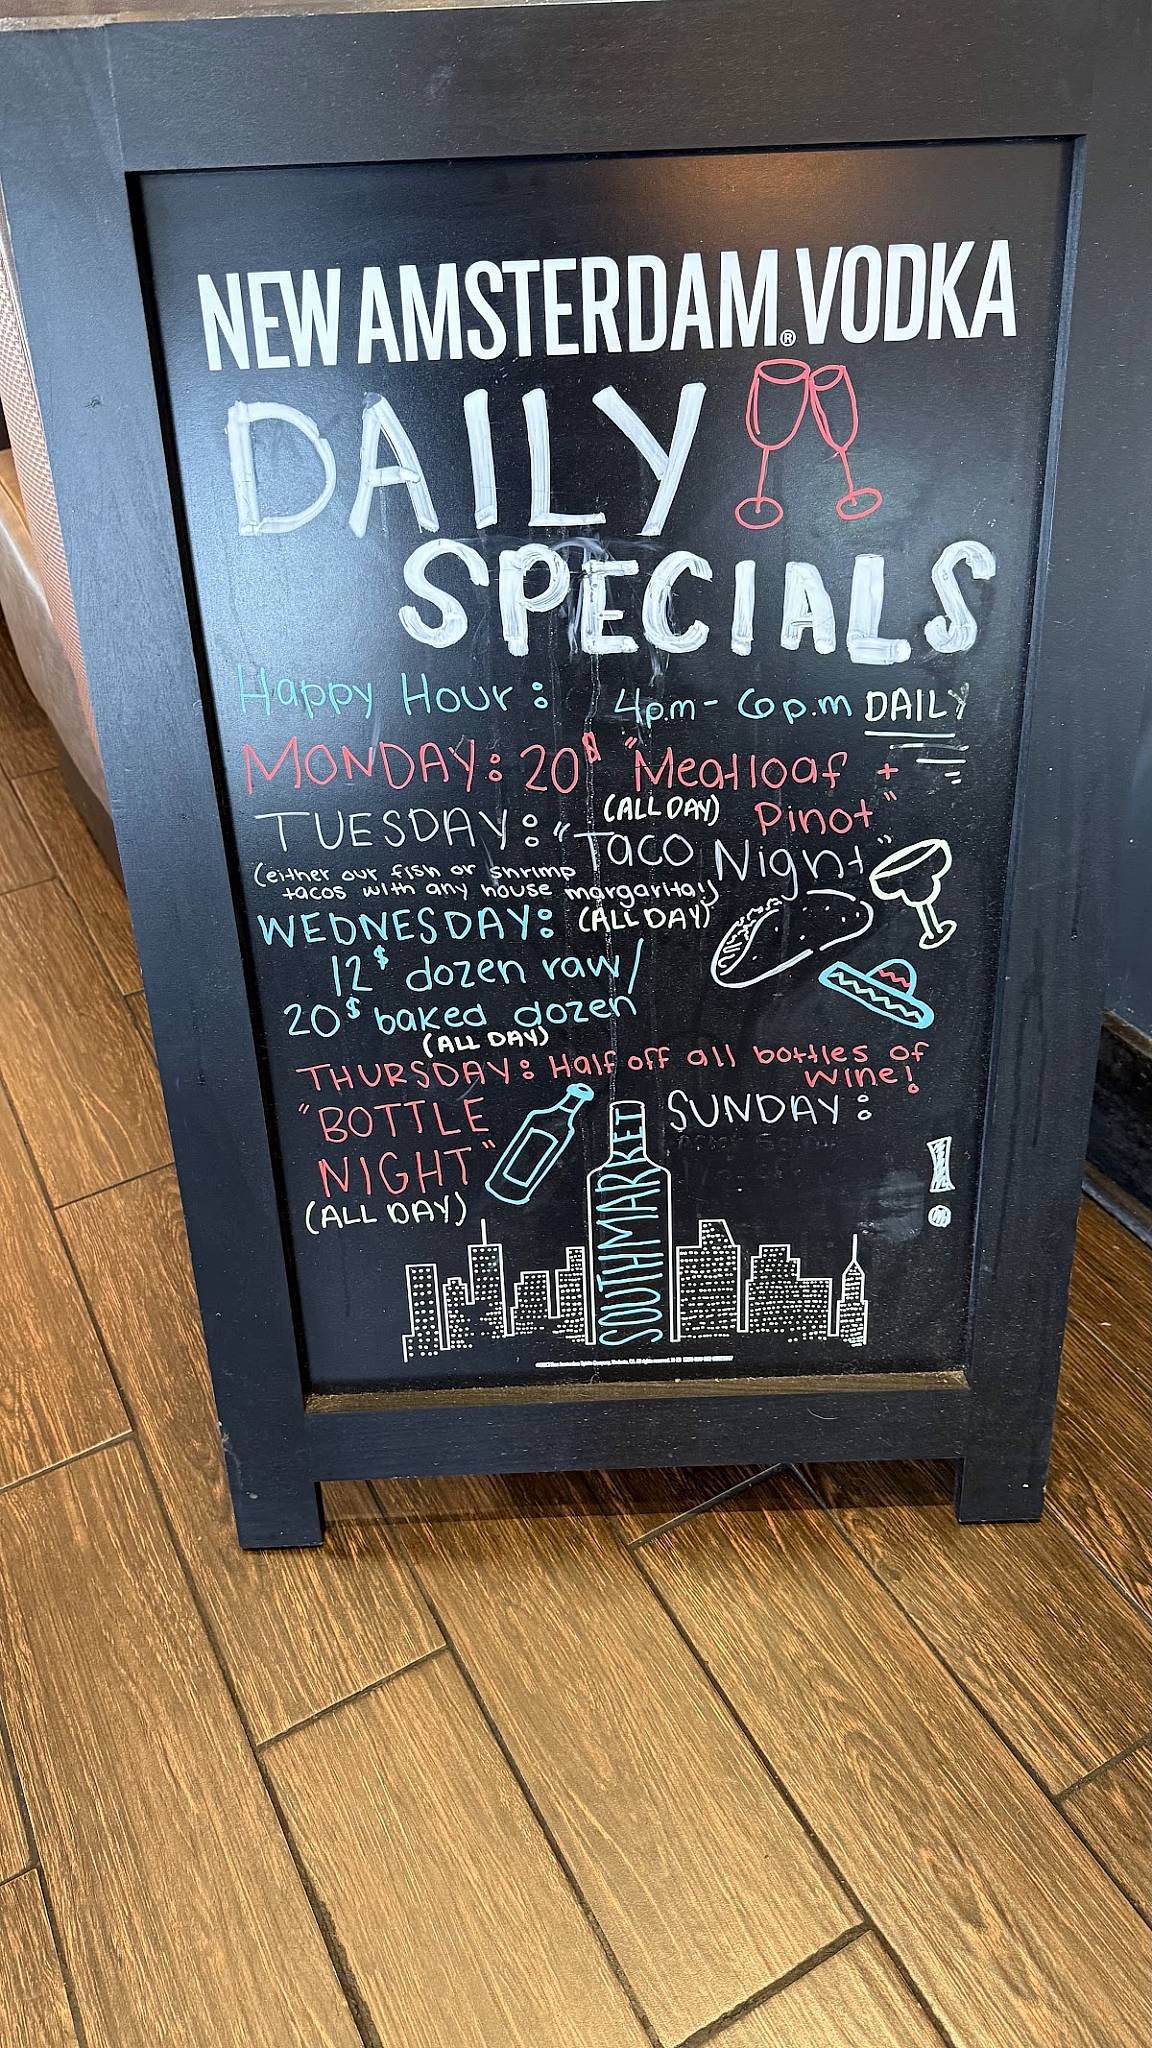 NEW AMSTERDAM® VODKA
DAILY
SPECIALS
Happy Hour: 4p.m - 6p.m DAILY
MONDAY: 20$ "Meatloaf +
Pinot"
(ALL DAY)
TUESDAY: "Taco Night"
(either our fish or shrimp
tacos with any house margarita!)
(ALL DAY)
WEDNESDAY:
12$ dozen raw/
20$ baked dozen
(ALL DAY)
THURSDAY: Half off all bottles of
wine!
"BOTTLE
NIGHT"
(ALL DAY)
SUNDAY:
!
SOUTHMARKET